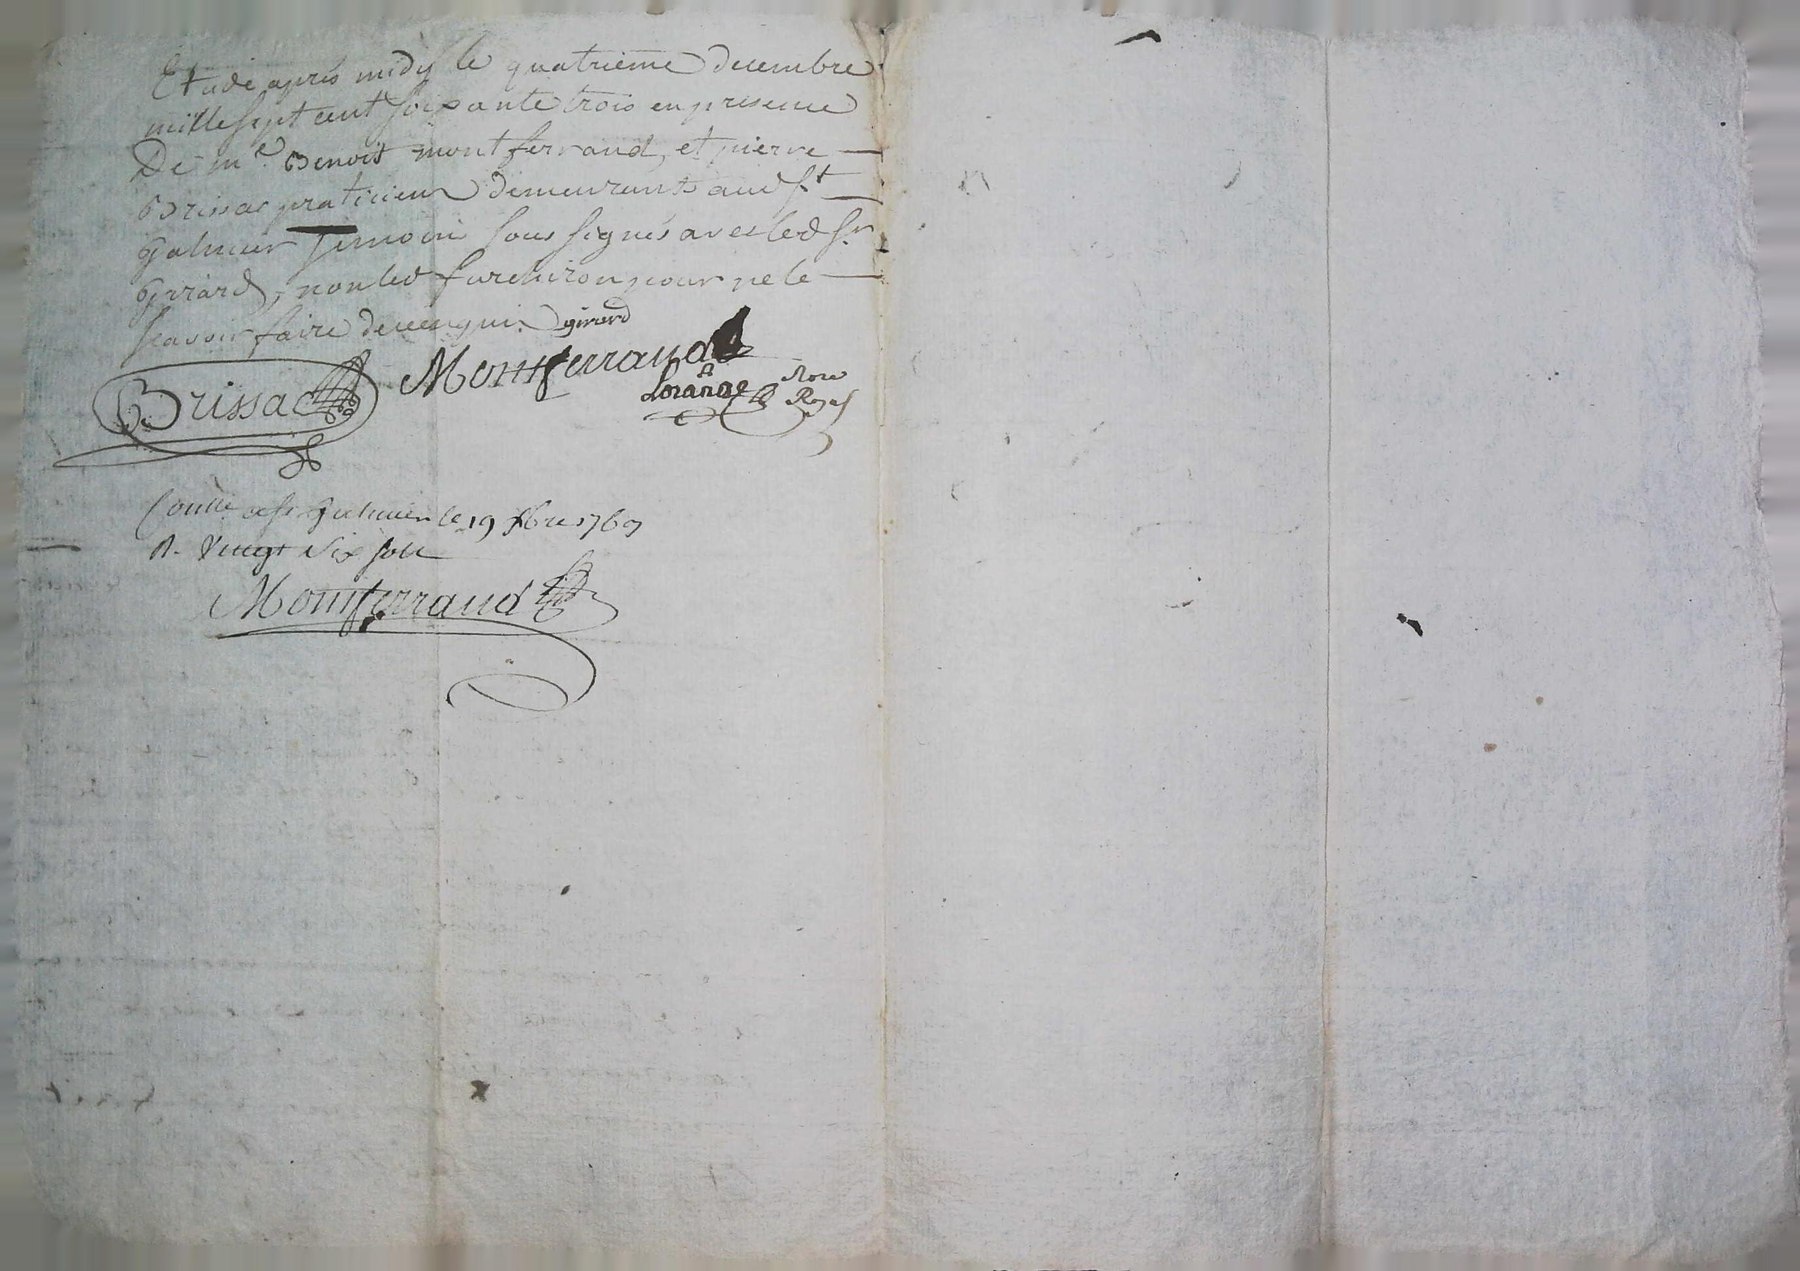 Et ade après midy le quatrième decembre
mille sept cent soixante trois en presence
De me. Benoit montferrand, et pierre
Brissac praticien demeurant aud st
Galmier temoins sous signés avec led sr
Girard, non led furchiron pour ne le
scavoir faire de ce enquis girard
Brissac Montferrand
Lorange Nore
Royal
Conllé a st Galmier le 19 Xbre 1763
R. Vingt Six sols
Montferrand